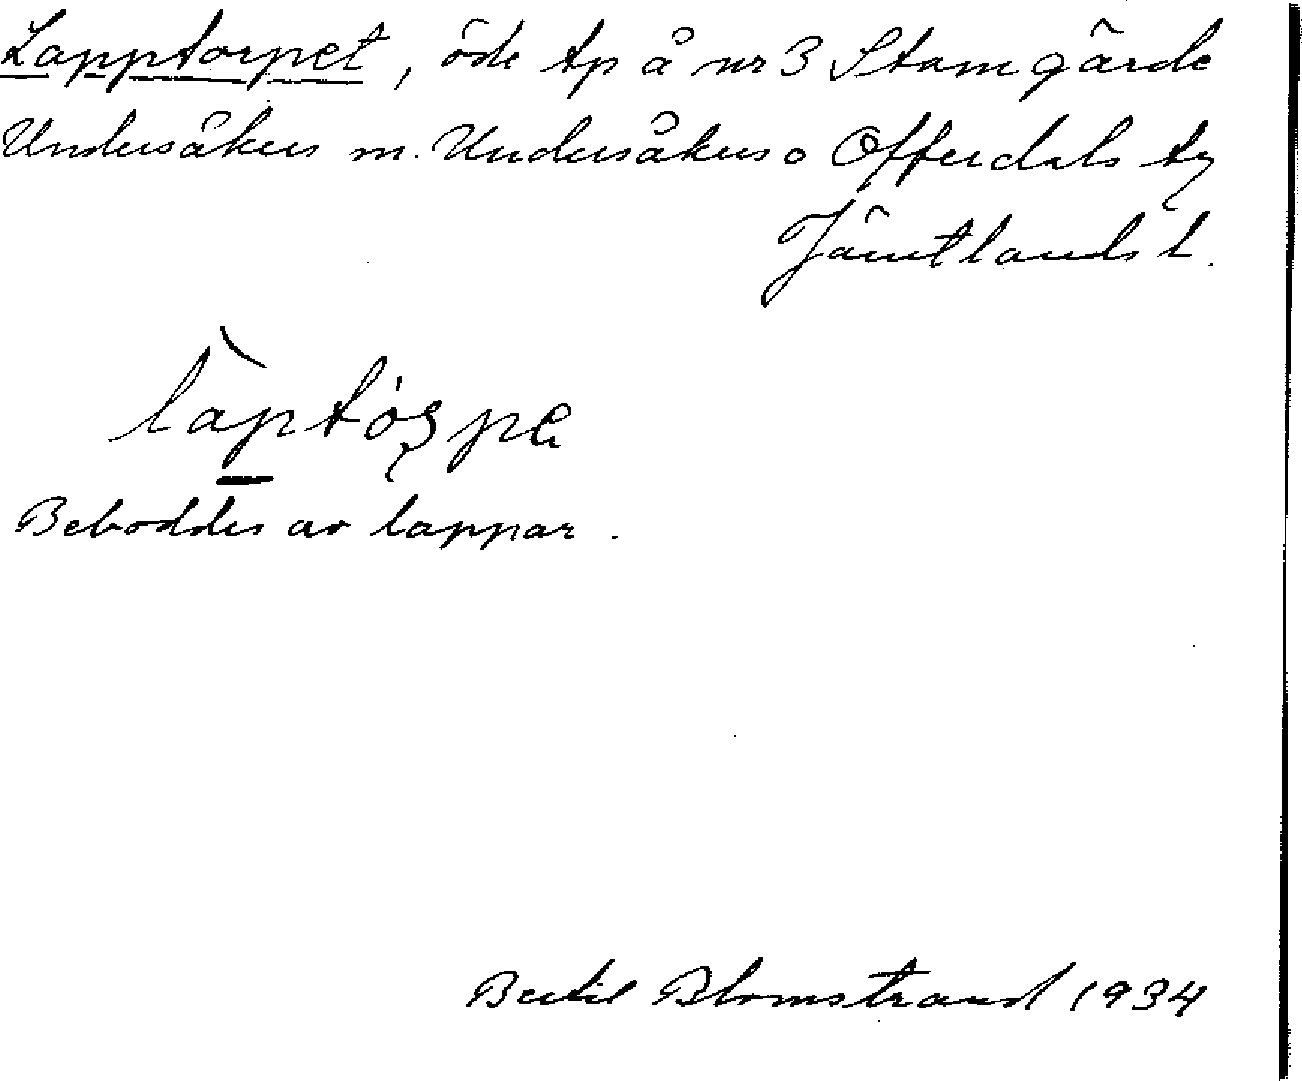 Lapptorpet, öde tp å nr 3 Stamgärde
Undersåkers sn. Undersåkers o Offerdals tg
Jämtlands l.
Beboddes av lappar.
Bertil Blomstrand 1934